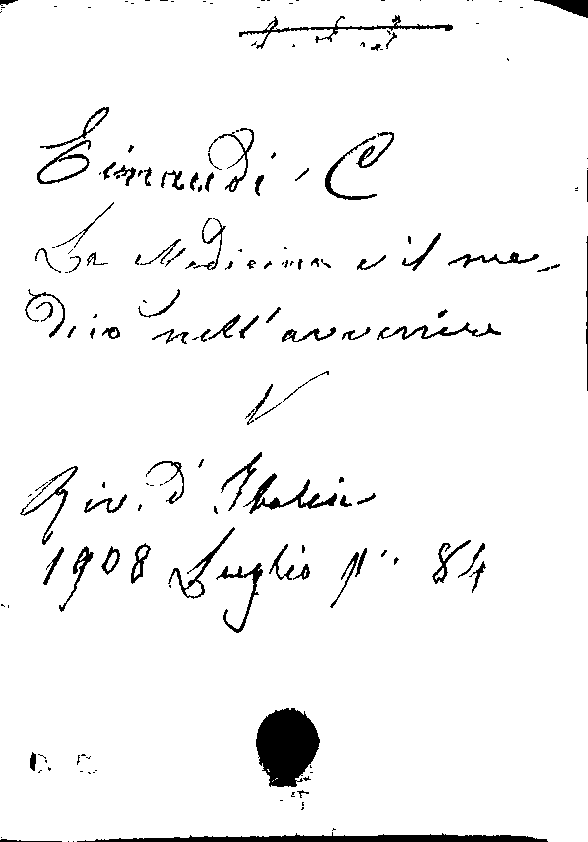 Einaudi, C
La Medicina e il me-
dico nell'avvenire
V
Riv. d'Italia
1908 Luglio p. 84